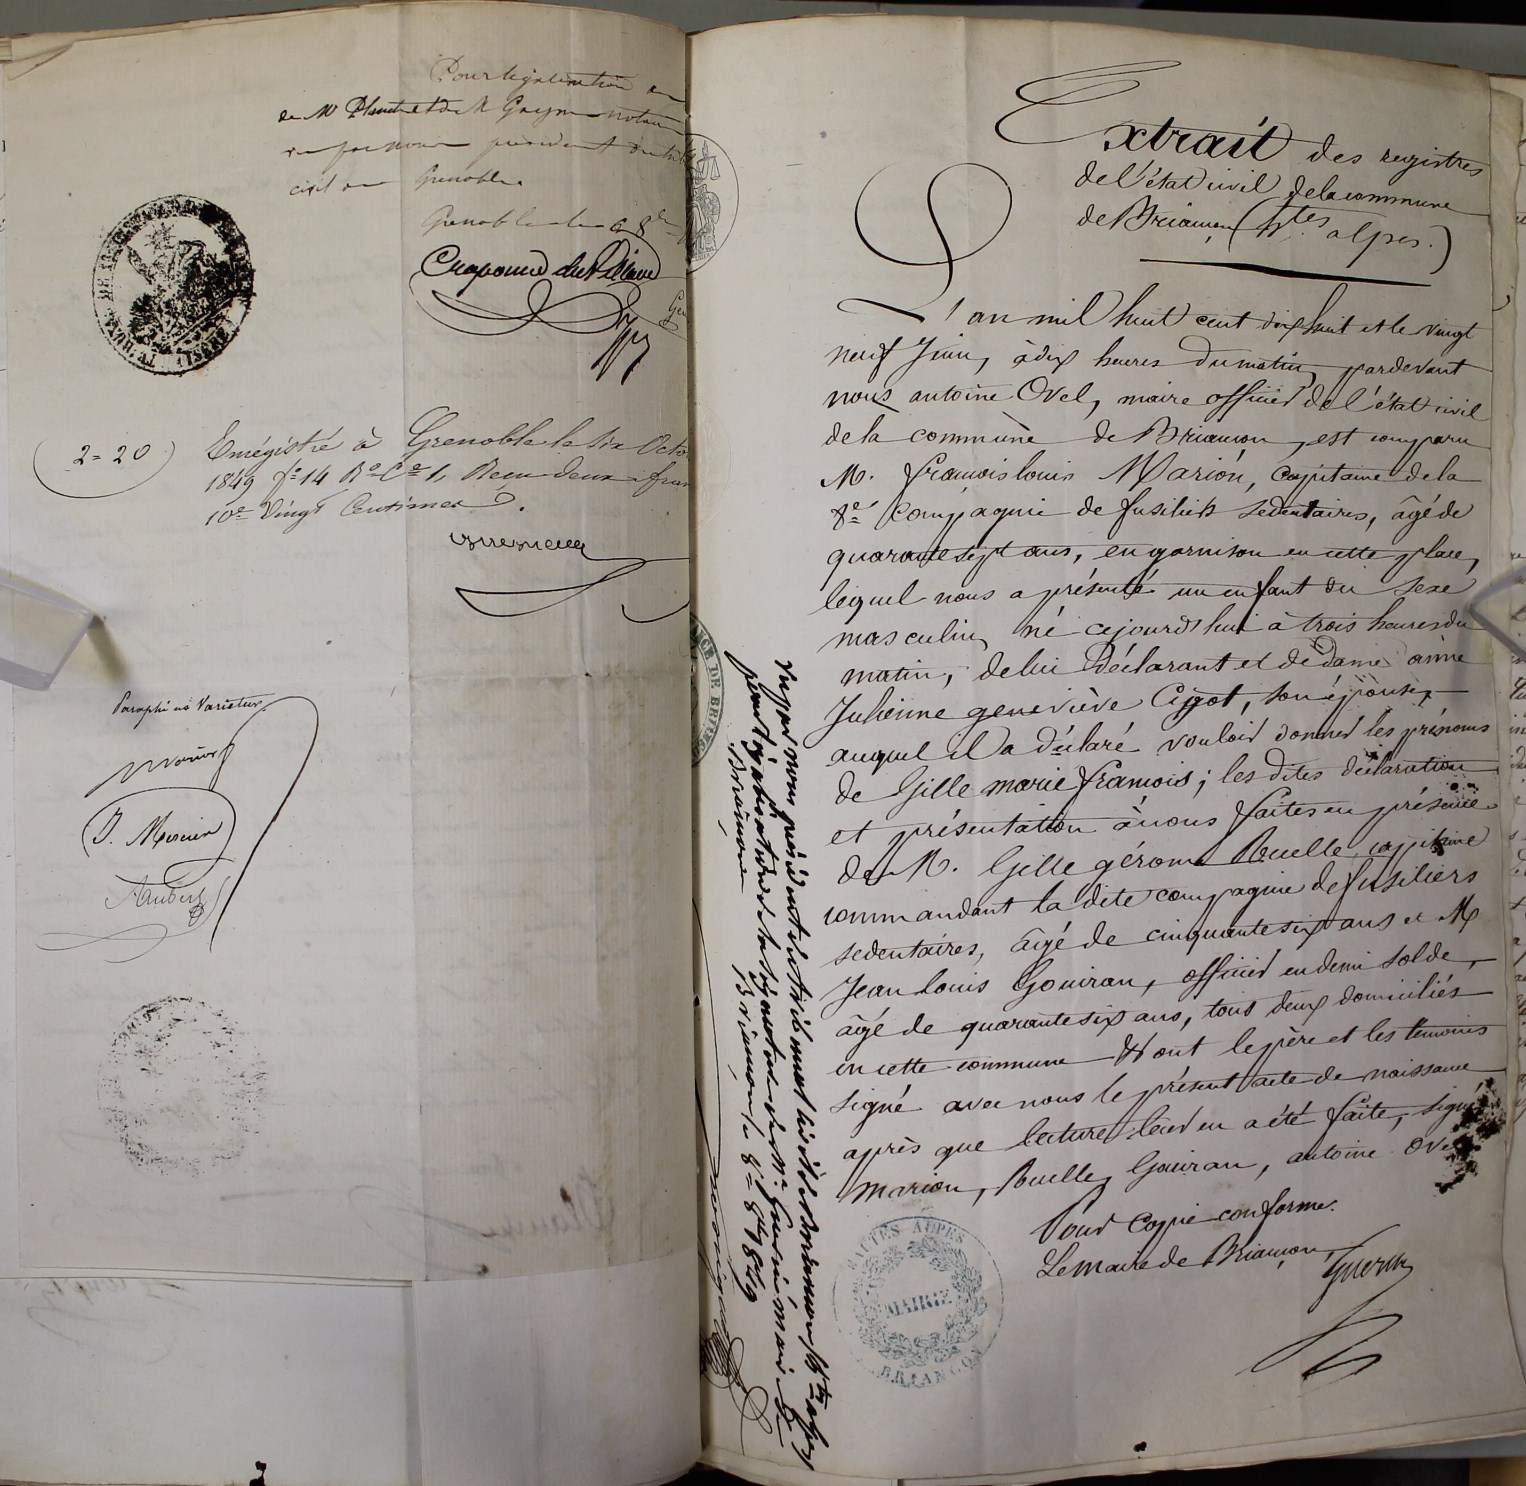 Pour légalisation
de Mr Planche et de M notaire
président du
civil de Grenoble.
Grenoble le 6 8bre
Craponne du Villard
(2=20)
Enregistré à Grenoble le six Octo
1849 fo 14 Ro Ce 1, Reçu deux fran
10e Vingt Centimes.
Paraphé ne Varietur
Marion
J. Mercier
Aaubert
Extrait des registres
de l'état civil de la commune
de Briançon (Htes alpes.)
L'an mil huit cent dix huit et le vingt
neuf Juin, à dix heures du matin, pardevant
nous antoine Ovel, maire officier de l'état civil
de la commune de Briançon, est comparu
M. françois louis Marion, Capitaine de la
8e Compagnie de fusiliers sedentaires, âgé de
quarante sept ans, en garnison en cette place,
lequel nous a présenté un enfant du sexe
masculin, né cejourd'hui à trois heures du
matin, de lui Déclarant et de Dame anne
Julienne geneviève Cigot, son épouse,
auquel il a déclaré vouloir donner les prénoms
de Gille marie françois; les dites déclaration
et présentation à nous faites en présence
de M. Gille gérome Ruelle, capitaine
commandant la dite compagnie de fusiliers
sedentaires, âgé de cinquante six ans et M
Jean Louis Gouiran, officier en demi solde,
âgé de quarante six ans, tous deux domiciliés
en cette commune Et ont le père et les temoins
signé avec nous le présent acte de naissance
après que lecture leur en a été faite, signé
Marion, Ruelle, Gouiran, antoine Ovel
Pour Copie conforme.
Le maire de Briançon,
Guerin
HAUTES ALPES
MAIRIE
BRIANÇON
Vu par nous président du tribunal civil de Briançon (htes alpes)
pour légalisation de la signature de Mr. Guerin maire de
Briançon Briançon le 8 8bre 1849